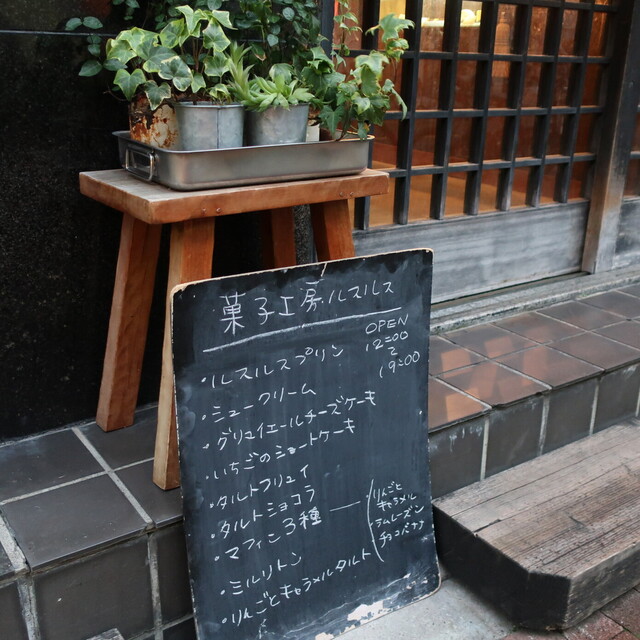 菓子工房ルスルス
OPEN
12:00
〜
19:00
・ルスルスプリン
・シュークリーム
・グリュイエールチーズケーキ
・いちごのショートケーキ
・タルトフリュイ
・タルトショコラ
・マフィン3種
りんごと
キャラメル
ラムレーズン
チョコバナナ
・ミルリトン
・りんごとキャラメルタルト